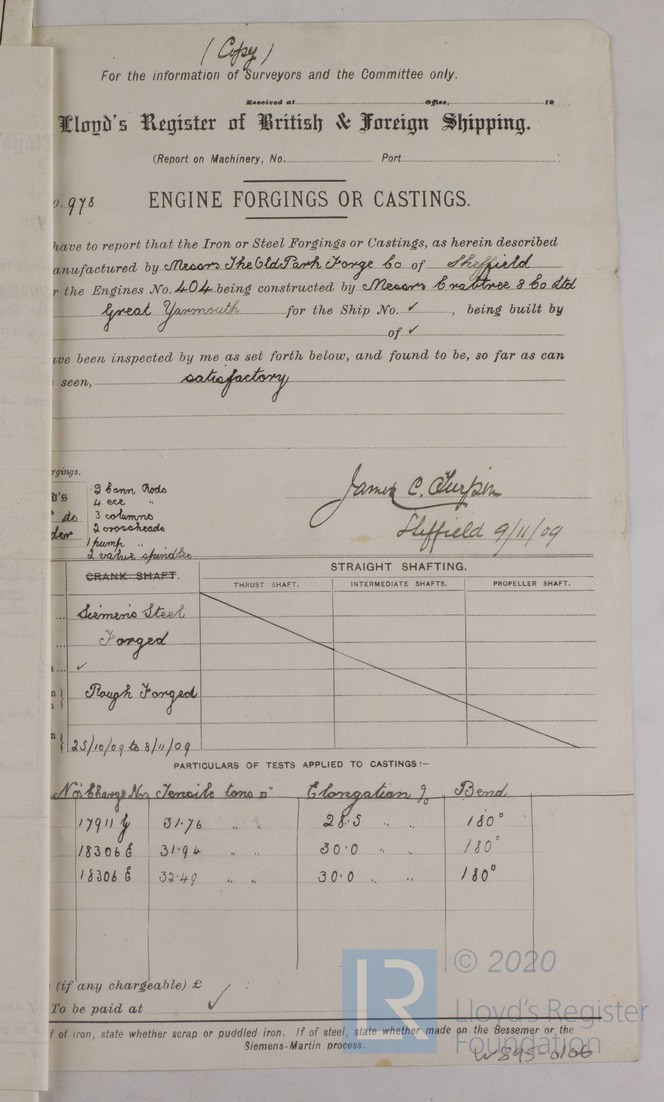 (Copy)
For the information of Surveyors and the Committee only.
Received at Office, 19
Lloyd's Register of British & Foreign Shipping.
(Report on Machinery, No. Port
o. 978 ENGINE FORGINGS OR CASTINGS.
have to report that the Iron or Steel Forgings or Castings, as herein described
anufactured by Messrs The Old Park Forge Co of Sheffield
r the Engines No. 404 being constructed by Messrs Crabtree & Co Ltd
Great Yarmouth for the Ship No. ✓ , being built by
of ✓
ave been inspected by me as set forth below, and found to be, so far as can
seen, satisfactory
rgings.
d's 2 Conn Rods
4 ecc "
" do 3 columns
der 2 crossheads
1 pump "
2 valve spindles
James C. Turpin
Sheffield 9/11/09
CRANK SHAFT. STRAIGHT SHAFTING.
THRUST SHAFT. INTERMEDIATE SHAFTS. PROPELLER SHAFT.
Siemens Steel
Forged
✓
Rough Forged
25/10/09 to 8/11/09
PARTICULARS OF TESTS APPLIED TO CASTINGS:—
Nos Charge Nos Tensile tons □" Elongation % Bend
17911 31·76 " " 28·5 " " 180°
18306 E 31·94 " " 30·0 " " 180°
18306 E 32·49 " " 30·0 " " 180°
(if any chargeable) £ :
To be paid at ✓
f of iron, state whether scrap or puddled iron. If of steel, state whether made on the Bessemer or the
Siemens-Martin process.
LR © 2020
Lloyd's Register
Foundation
W895-0106